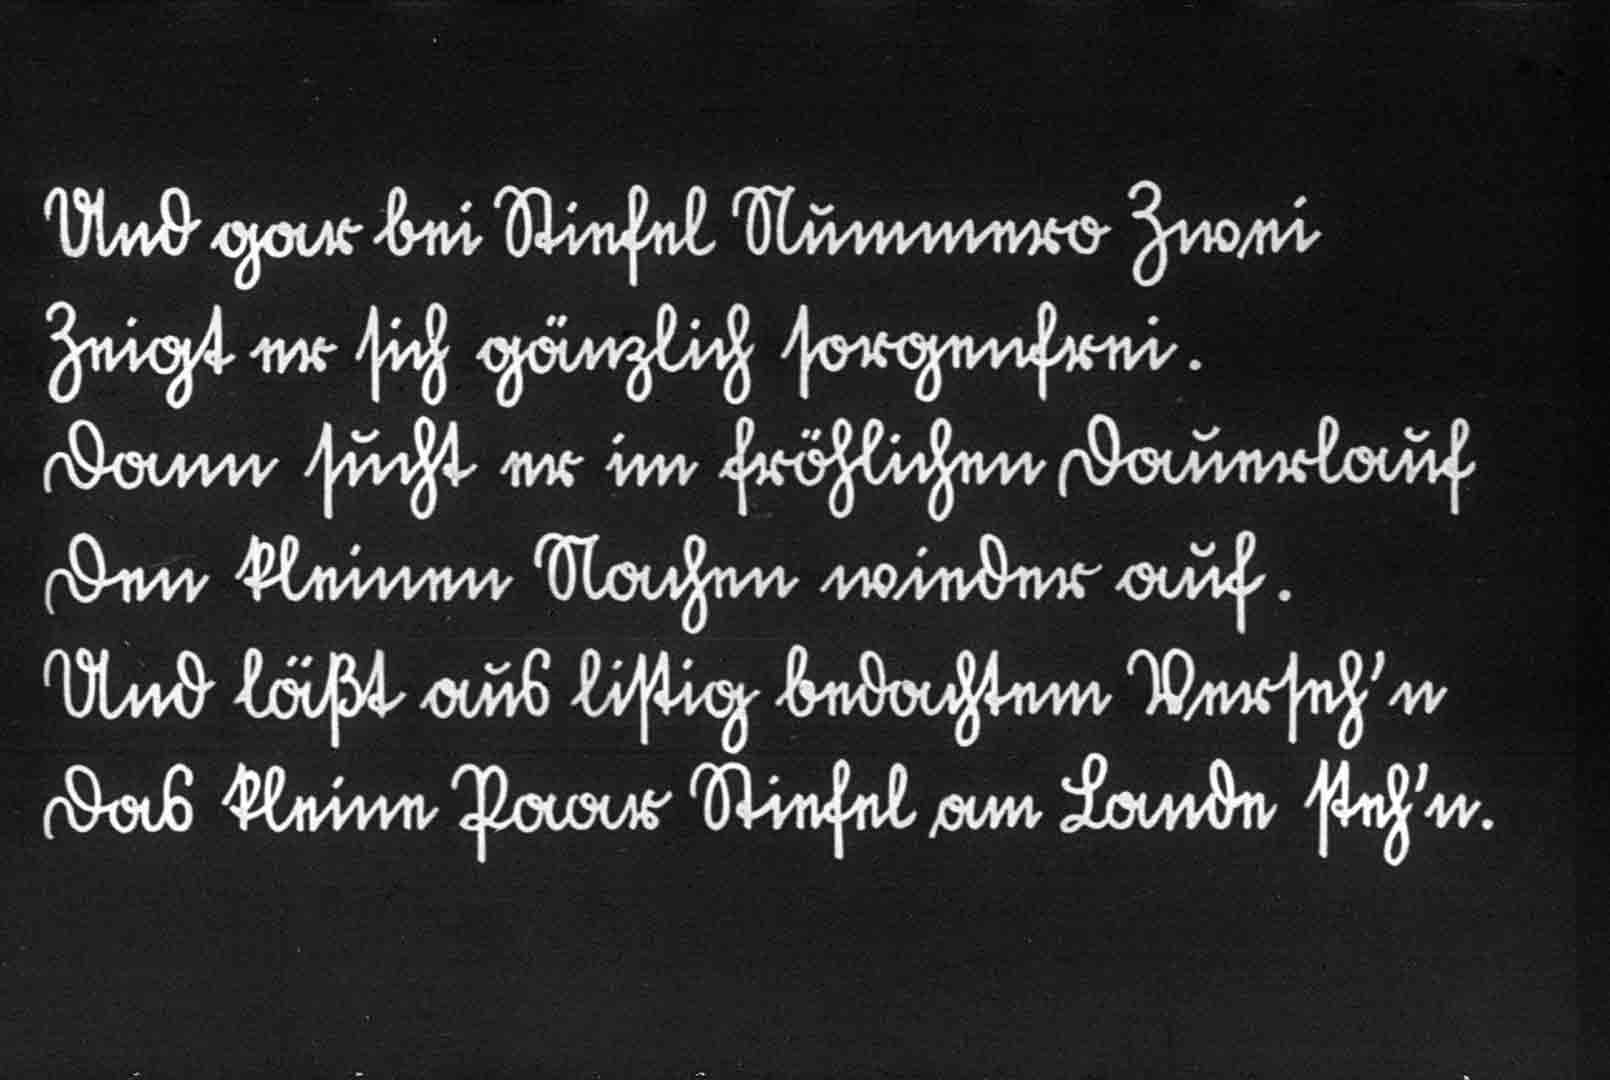 Und gar bei Stiefel Nummero Zwei
Zeigt er sich gänzlich sorgenfrei.
Dann sucht er im fröhlichen Dauerlauf
Den kleinen Nachen wieder auf.
Und läßt aus listig bedachtem Verseh'n
Das kleine Paar Stiefel am Lande steh'n.